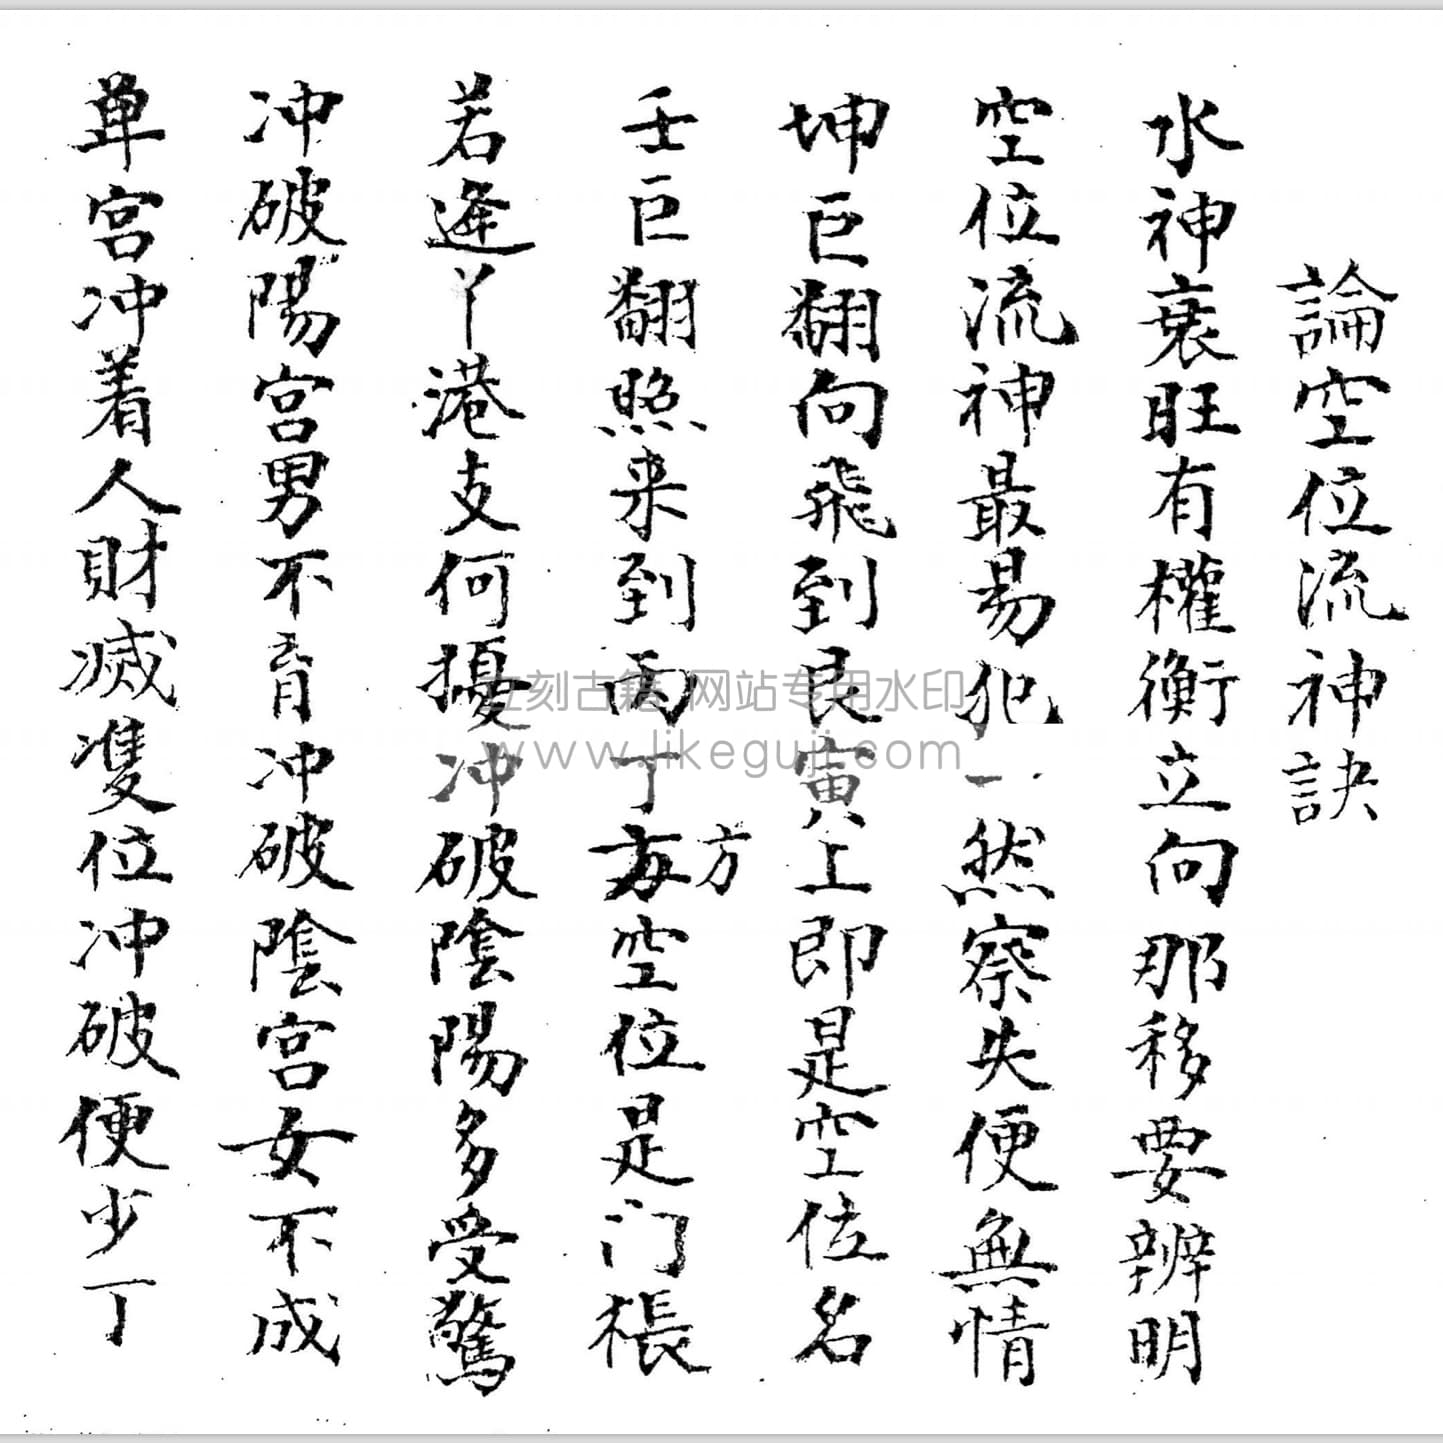 論空位流神訣
水神衰旺有權衡立向那移要辨明
空位流神最易犯一然察失便無情
坤巨翻向飛到艮寅上即是空位名
壬巨翻照来到丙丁方空位是门桭
若逢丫港支何擾冲破陰陽多受驚
冲破陽宫男不育冲破陰宫女不成
单宫冲着人財滅隻位冲破便少丁
立刻古籍 网站专用水印
www.likeguji.com